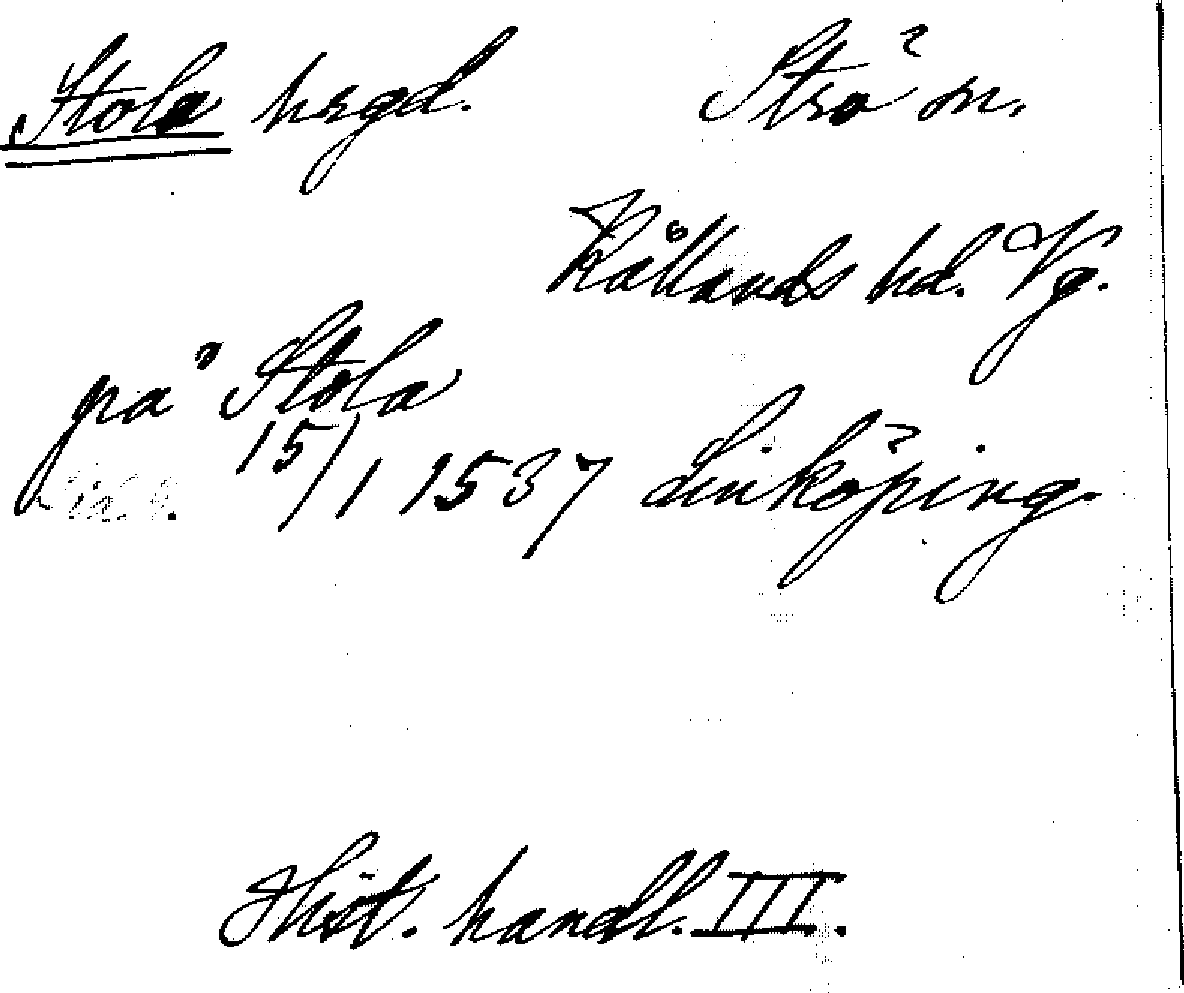 Stola hrgd. Strö sn.
Kållands hd. Vg.
på Stola
15/1 1537 Linköping.
Hist. handl. III.